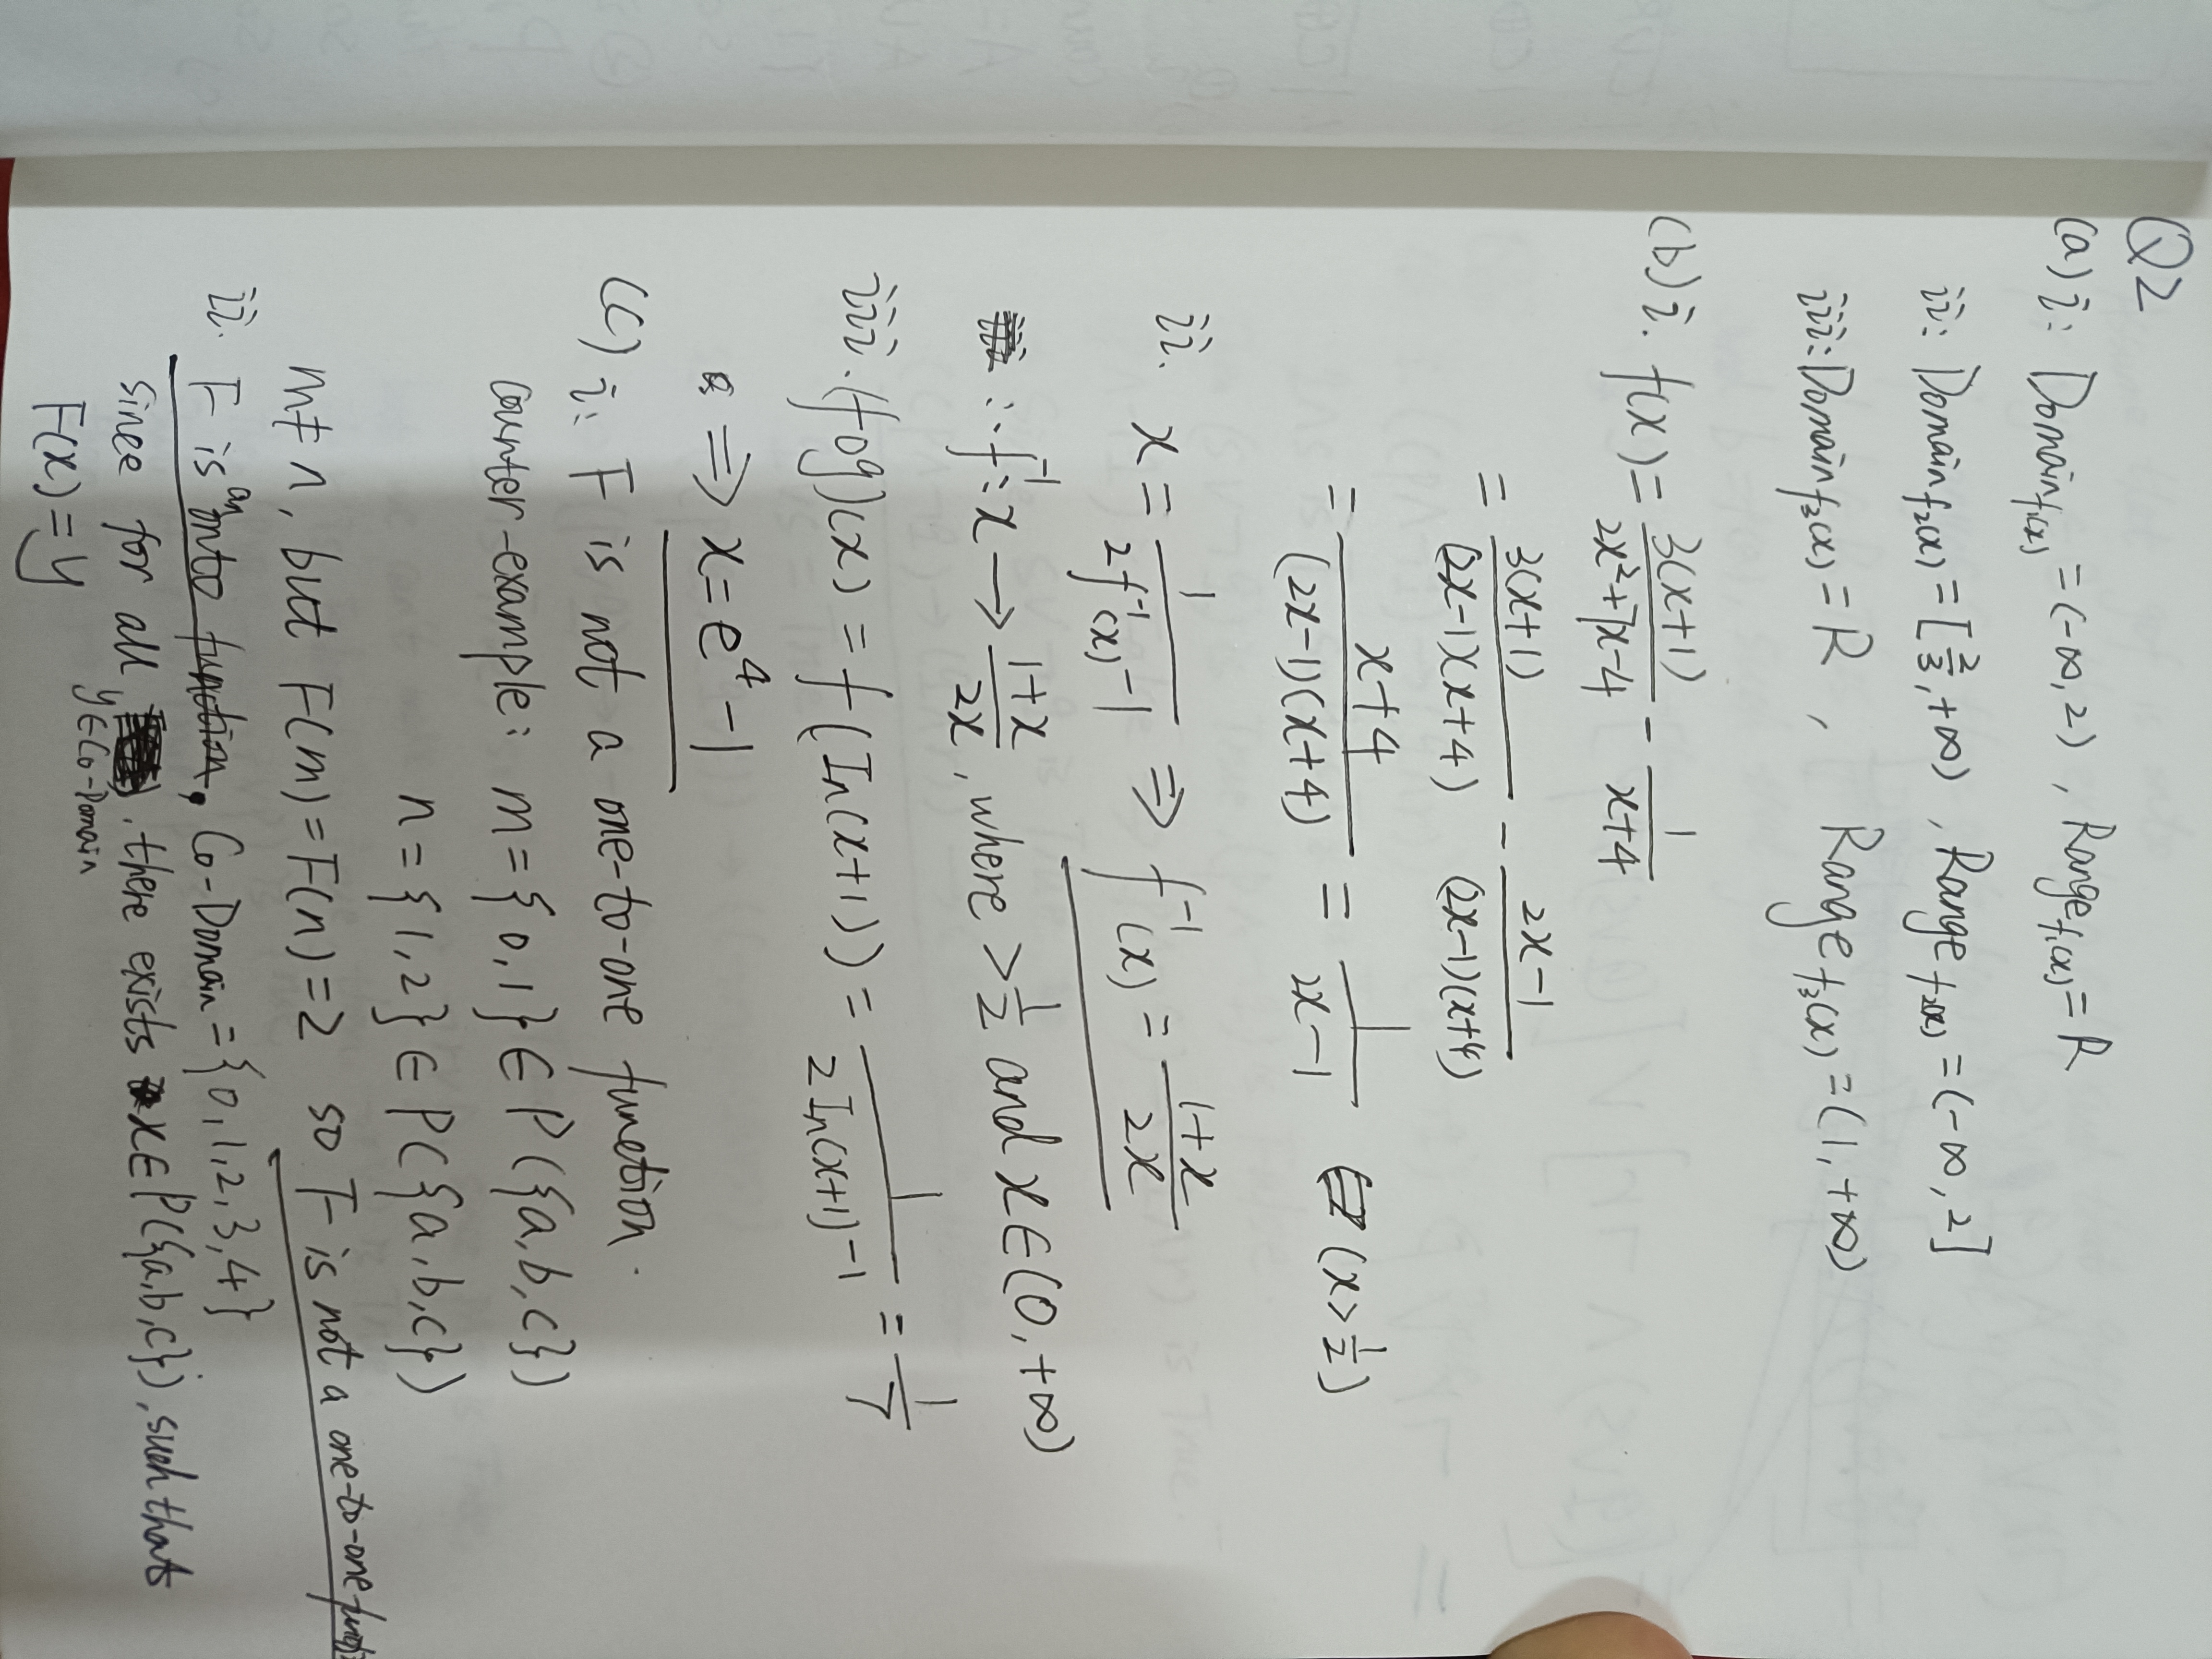 Q2
(a) i: Domain f₁(x) = (-∞, 2), Range f₁(x) = R
ii: Domain f₂(x) = [2/3, +∞), Range f₂(x) = (-∞, 2]
iii: Domain f₃(x) = R, Range f₃(x) = (1, +∞)
(b) i. f(x) = 3(x+1)/(2x²+7x-4) - 1/(x+4)
= 3(x+1)/((2x-1)(x+4)) - (2x-1)/((2x-1)(x+4))
= (x+4)/((2x-1)(x+4)) = 1/(2x-1) (x > 1/2)
ii. x = 1/(2f⁻¹(x)-1) ⇒ f⁻¹(x) = (1+x)/2x
∴ f⁻¹: x → (1+x)/2x, where > 1/2 and x ∈ (0, +∞)
iii. (f∘g)(x) = f(In(x+1)) = 1/(2In(x+1)-1) = 1/7
⇒ x = e⁴ - 1
(c) i: F is not a one-to-one function.
counter-example: m = {0,1} ∈ P({a,b,c})
n = {1,2} ∈ P({a,b,c})
m ≠ n, but F(m) = F(n) = 2 so F is not a one-to-one
ii. F is an onto function. Co-Domain = {0,1,2,3,4}
since for all y∈Co-Domain, there exists x∈P({a,b,c}), such that
F(x) = y